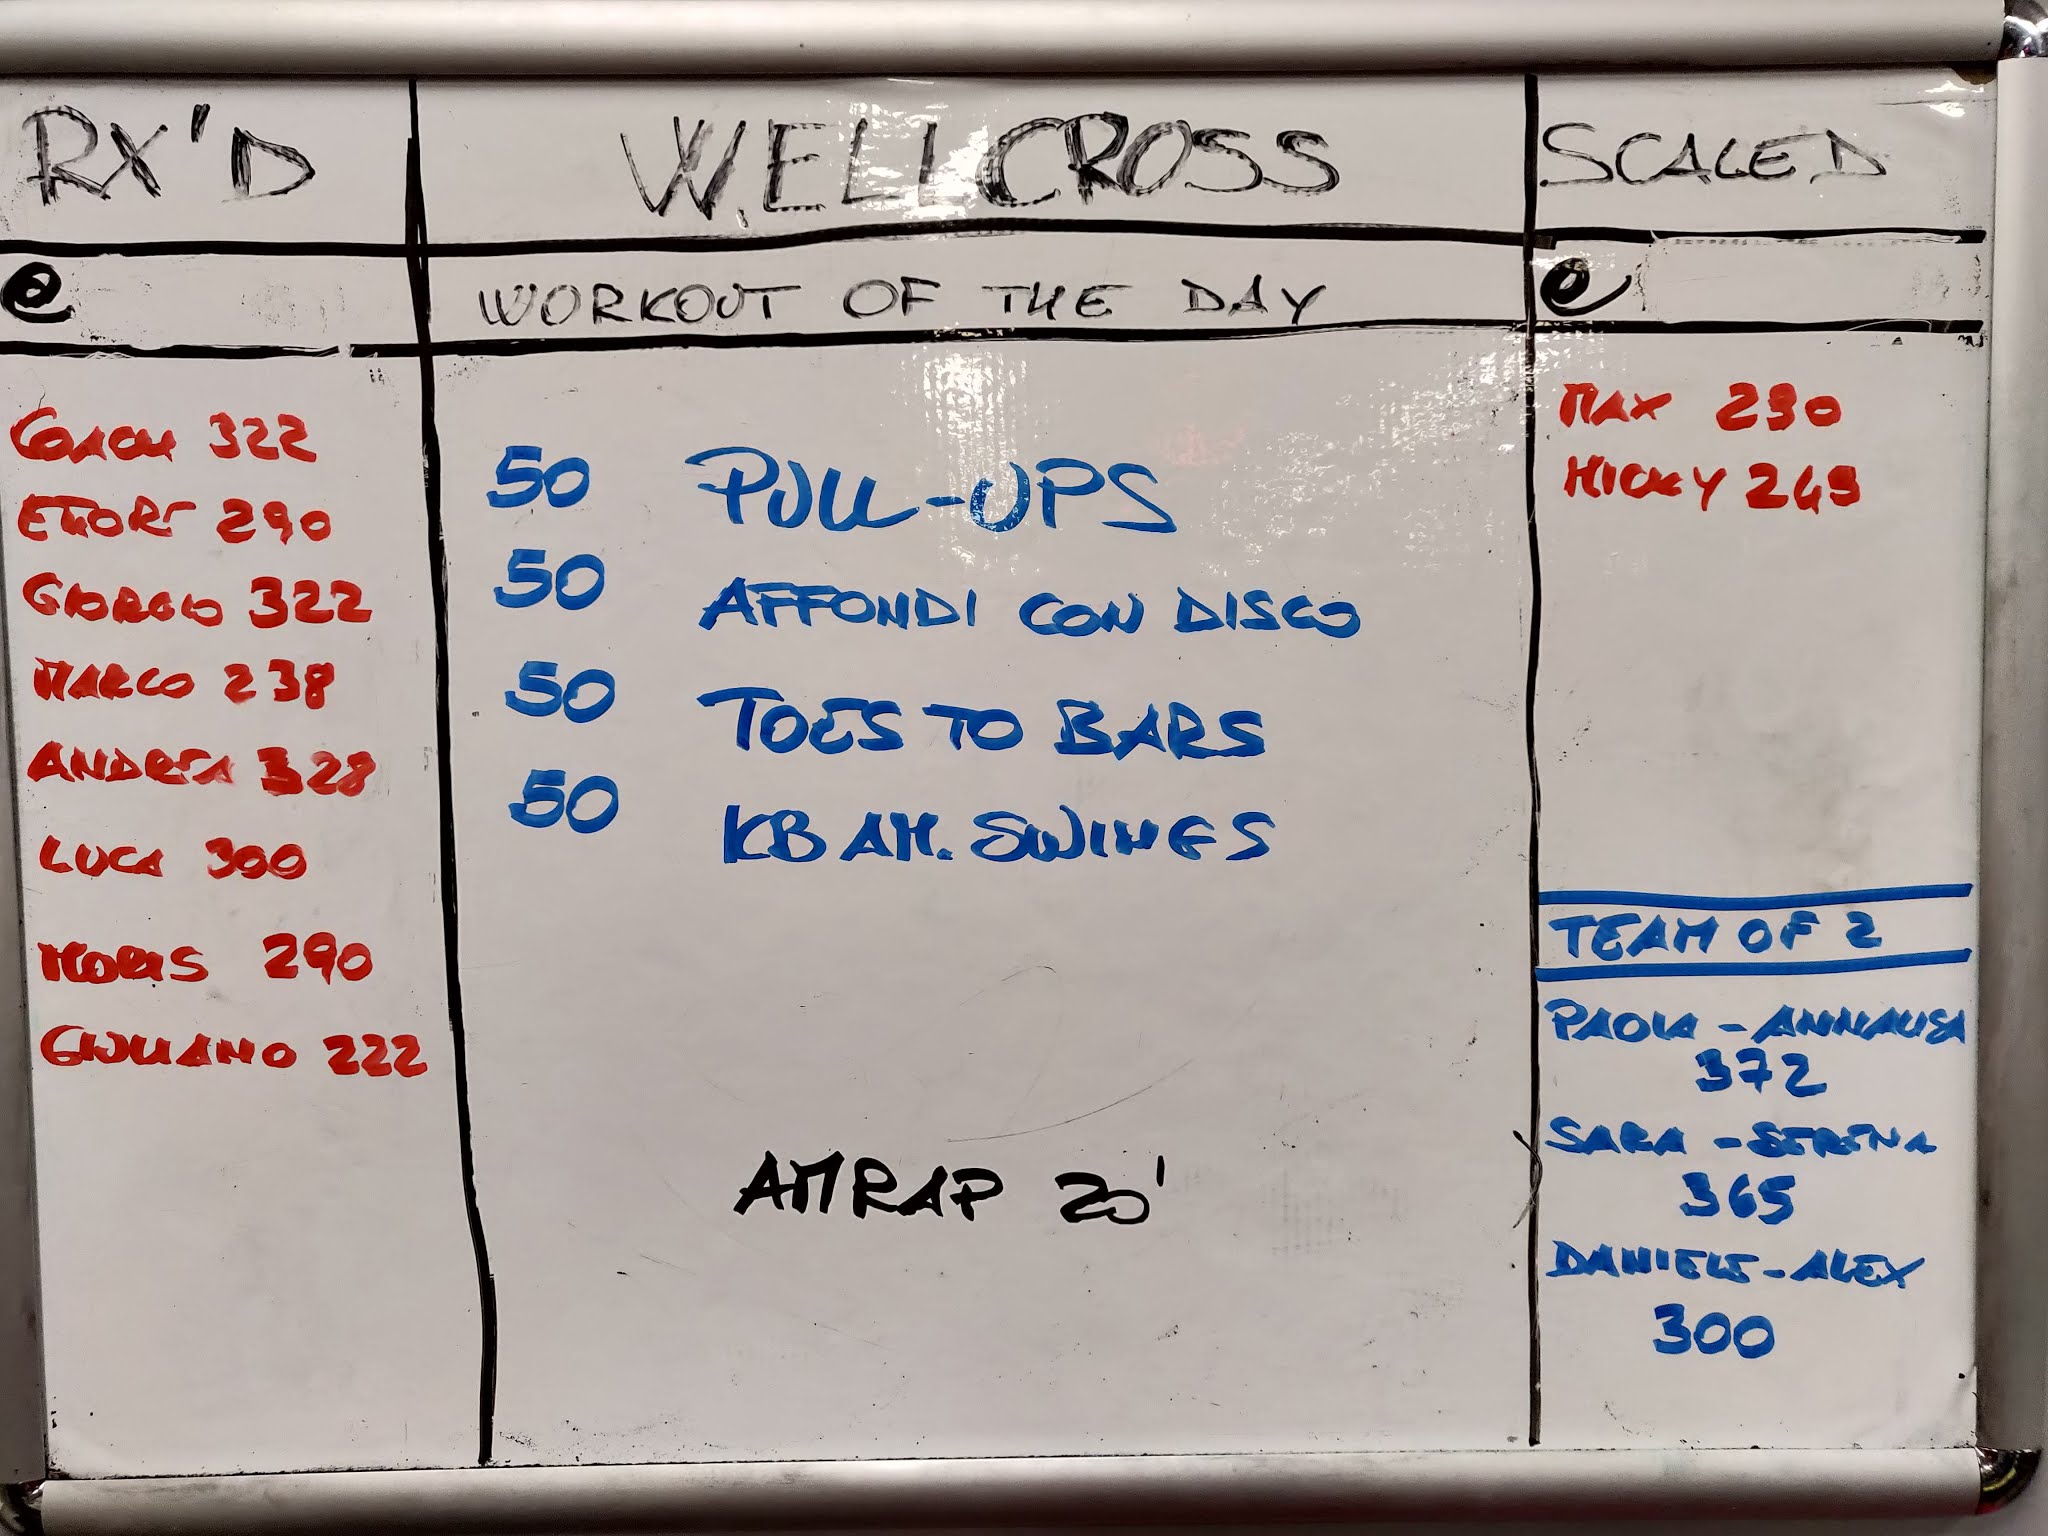 RX'D
@
COACH 322
ETTORE 290
GIORGIO 322
MARCO 238
ANDREA 328
LUCA 300
MORIS 290
GIULIANO 222
WELLCROSS
WORKOUT OF THE DAY
50 PULL-UPS
50 AFFONDI CON DISCO
50 TOES TO BARS
50 KB AM. SWINGS
AMRAP 20'
SCALED
@
MAX 290
MICKY 249
TEAM OF 2
PAOLA - ANNALISA
372
SARA - SERENA
365
DANIELE - ALEX
300